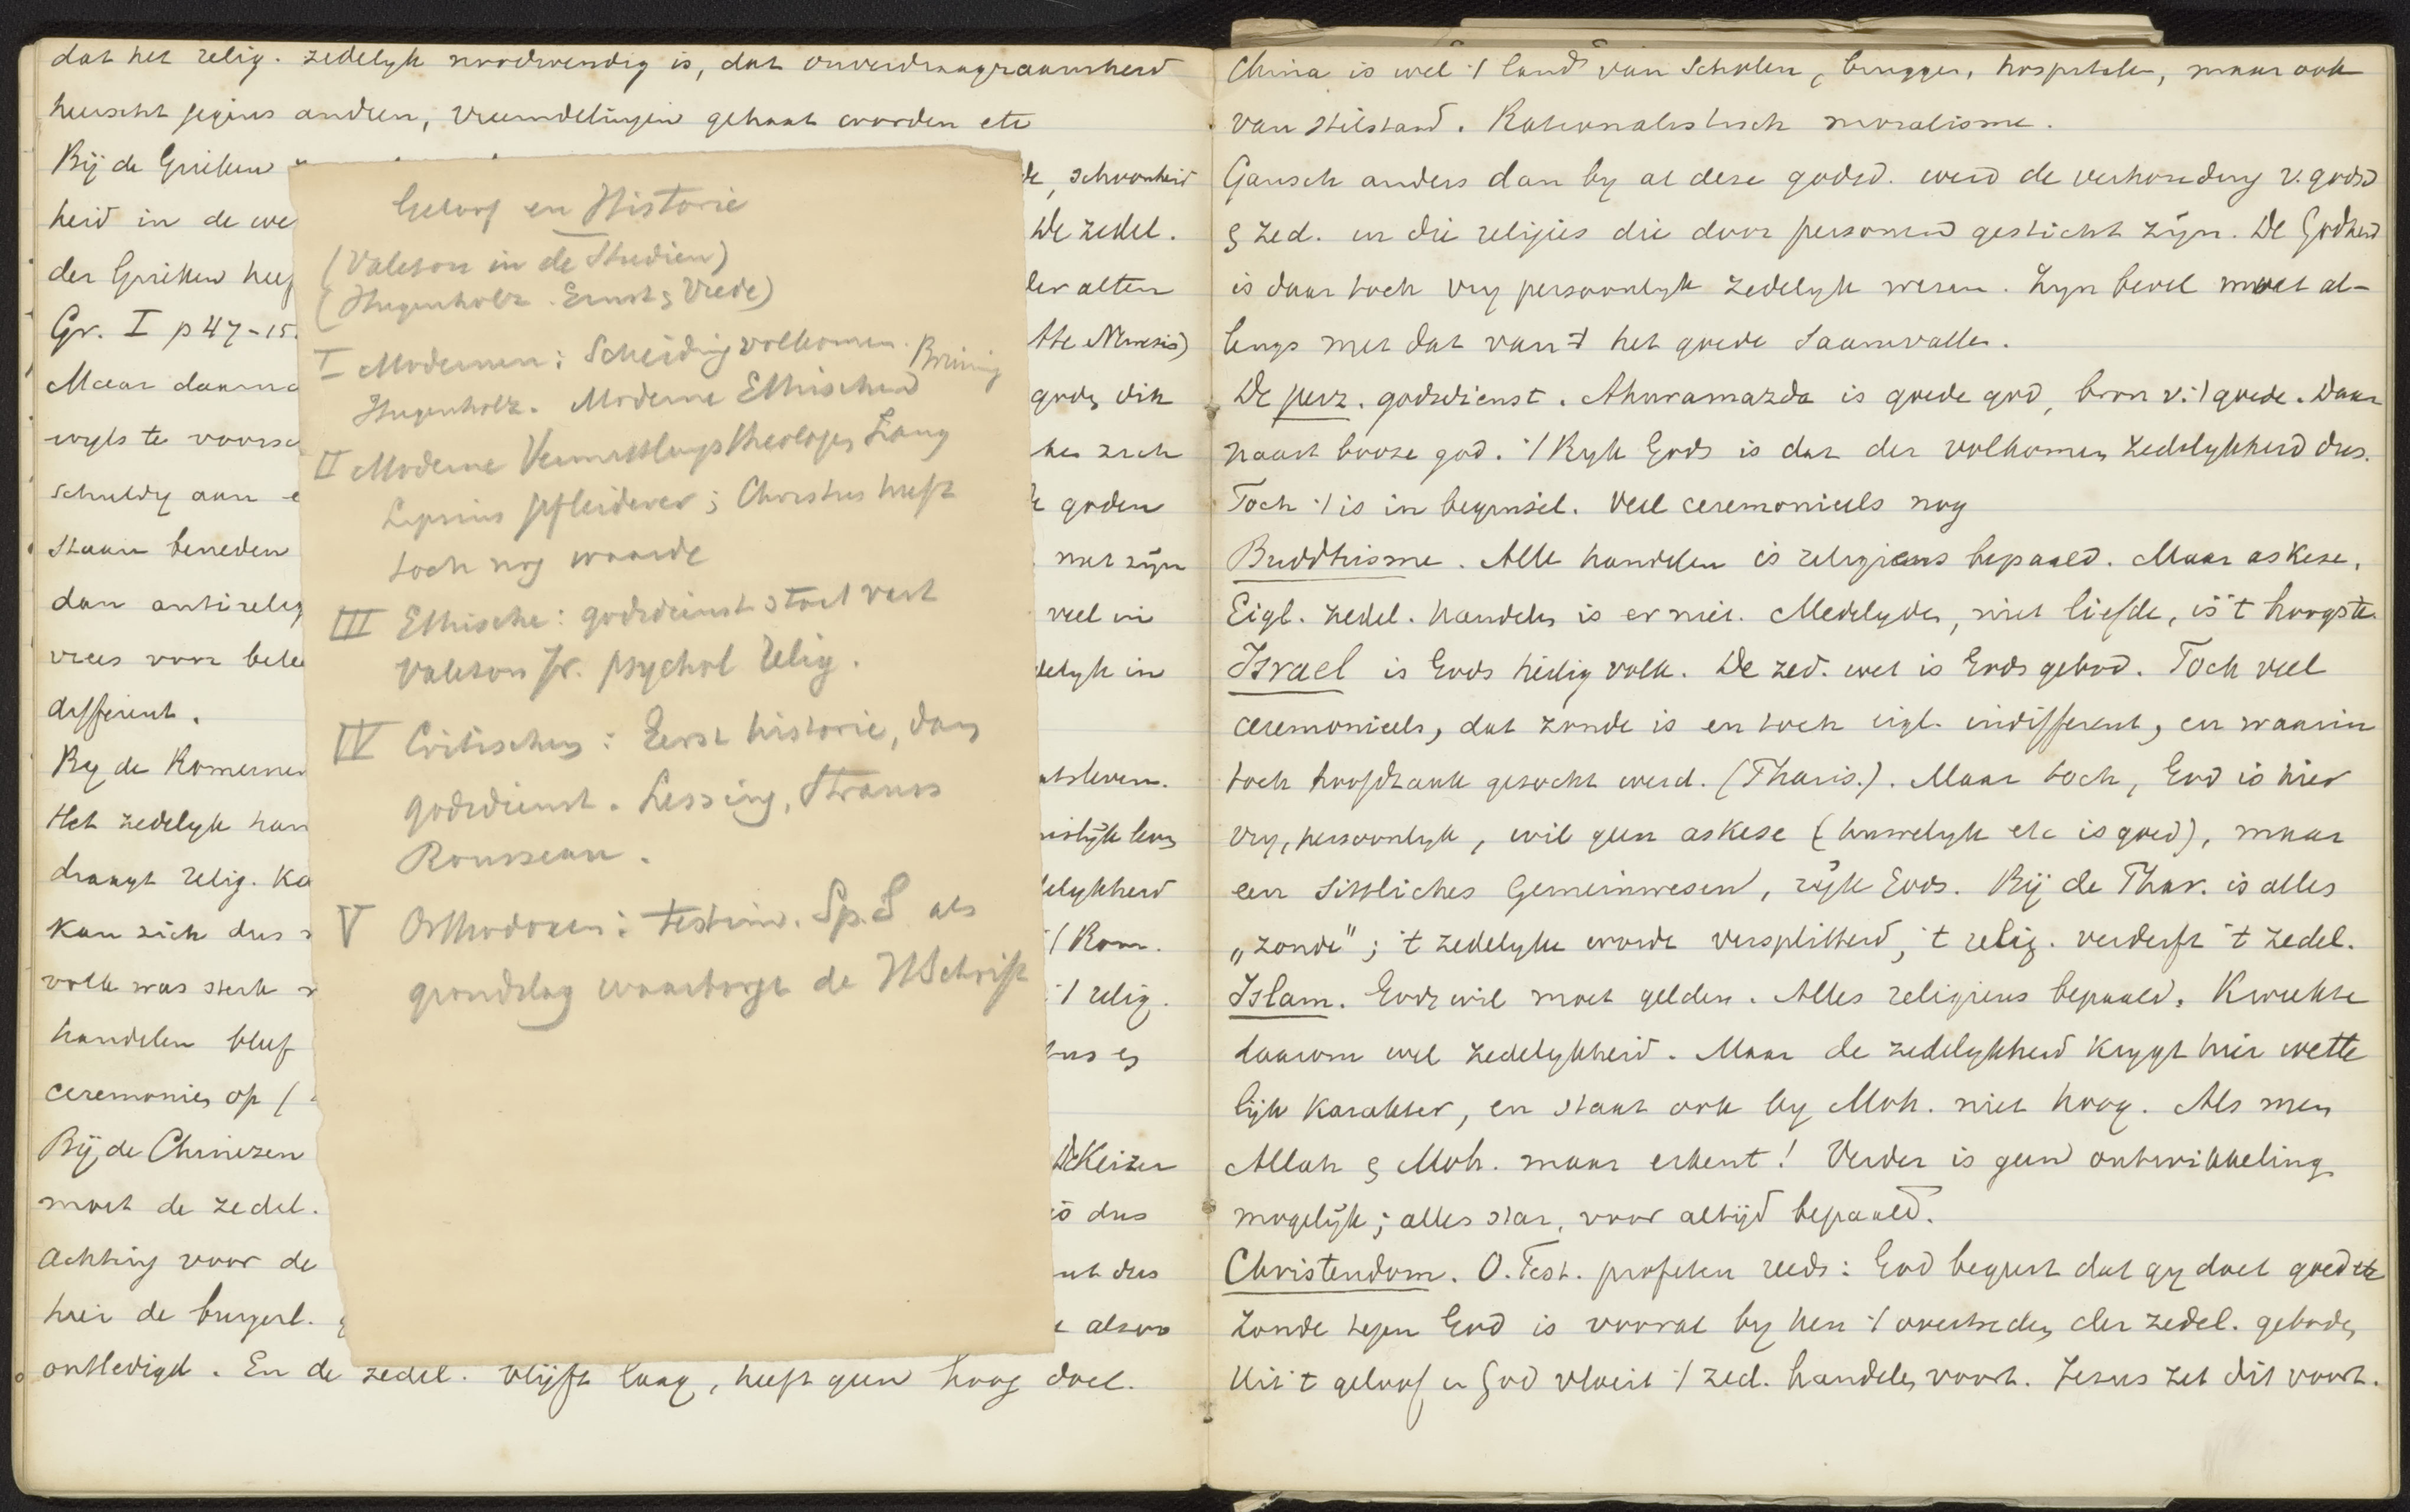 dat het relig. zedelyk noodwendig is, dat onverdraagzaamheid
heerscht jegens anderen, vreemdelingen gehaat worden etc
Bij de Grieken
heid in de we
der Grieken heef
Gr. I p 47-15.
Maar daarna
wyls te voorsc
schuldig aan e
staan beneden
dan antirelig
vrees voor bele
different.
By de Romeinen
Het zedelyk han
draagt relig. ka
kan zich dus
volk was sterk
handelen bleef
ceremonies op /
Bij de Chineezen
moet de zedel.
Achting voor de
hier de burgerl.
ontledigd. En de zedel. blijft laag, heeft geen hoog doel.
de, schoonheid
De zedel.
der alten
tte Nemesis)
goden dik
zich
goden
met zijn
veel in
delyk in
atsleven.
islijk leven
delykheid
:/ Rom.
:/ relig.
De Keizer
is dus
dus
alzoo
Geloof en Historie
(Valeton in de Studien)
(Hugenholz. Ernst & Vrede)
I Modernen: Scheiding volkomen. Bruining
Hugenholz. Moderne Ethischen
II Moderne Vermittlungstheologen Lang
Lipsius Pfleiderer; Christus heeft
toch nog waarde
III Ethische: godsdienst staat vast
Valeton Jr. psychol relig.
IV Critischen: Eerst historie, dan
godsdienst. Lessing, Strauss
Rousseau.
V Orthodoxen: testim. Sp. S als
grondslag waarborgt de HSchrift
China is wel :/ land van Scholen, bruggen, hospitalen, maar ook
van stilstand. Rationalistisch moralisme.
Gansch anders dan by al deze godsd. werd de verhouding v. godsd
& zed. in die religies die door personen gesticht zijn. De Godheid
is daar toch vry persoonlyk zedelyk wezen. Zyn bevel moet al-
lengs met dat van 't het goede saamvallen.
De perz. godsdienst. Ahuramazda is goede god, bron v. :/ goede. Daar
naast booze god. :/ Ryk Gods is dat der volkomen zedelykheid dus.
Toch :/ is in beginsel. Veel ceremonieels nog
Buddhisme. Alle handelen is religieus bepaald. Maar askese.
Eigl. zedel. handelen is er niet. Medelyden, niet liefde, is 't hoogste.
Israel is Gods heilig volk. De zed. wet is Gods gebod. Toch veel
ceremonieels, dat zonde is en toch eigl. indifferent, en waarin
toch hoofdzaak gezocht werd. (Phariz.). Maar toch, God is hier
vry, persoonlyk, wil geen askese (huwelyk etc is goed), maar
een sittliches Gemeinwesen, rijk Gods. Bij de Phar. is alles
„zonde"; 't zedelyke wordt versplitterd, 't relig. verderft 't zedel.
Islam. Gods wil moet gelden. Alles religieus bepaald. Kweekte
daarom wel zedelykheid. Maar de zedelykheid krygt hier wette
lijk karakter, en staat ook by Moh. niet hoog. Als men
Allah & Moh. maar erkent! Verder is geen ontwikkeling
mogelijk; alles star, voor altijd bepaald.
Christendom. O. Test. profeten reeds: God begeert dat gy doet goed etc
Zonde tegen God is vooral by hen :/ overtreden der zedel. geboden
Uit 't geloof in God vloeit :/ zed. handelen voort. Jezus zet dit voort.